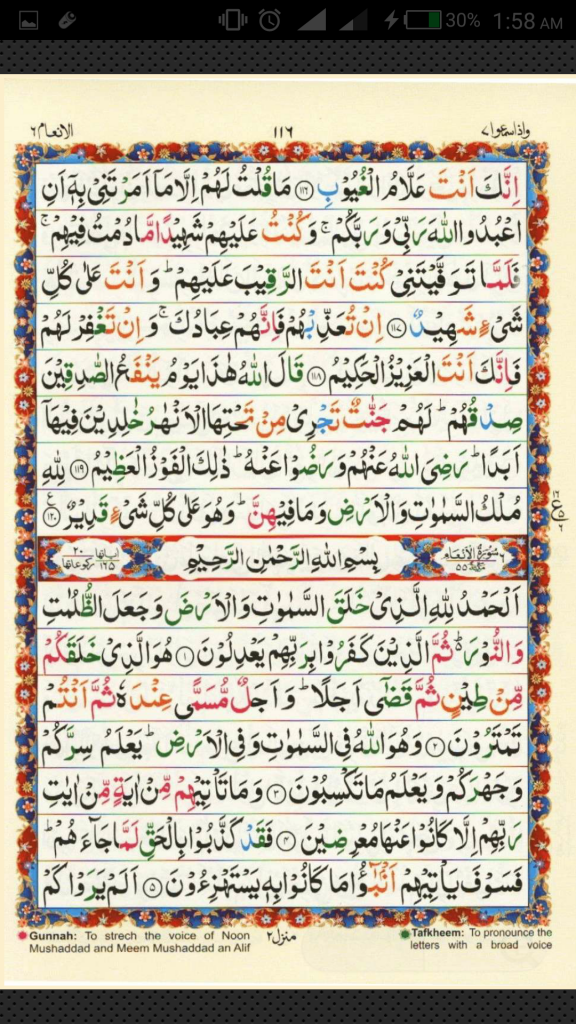 30% 1:58 AM
واذاسمعوا ٧ ١١٦ الانعام ٦
اِنَّكَ اَنْتَ عَلَّامُ الْغُيُوْبِ ﴿۱۱۶﴾ مَا قُلْتُ لَهُمْ اِلَّا مَاۤ اَمَرْتَنِیْ بِهٖۤ اَنِ
اعْبُدُوا اللّٰهَ رَبِّیْ وَ رَبَّكُمْ ۚ وَ كُنْتُ عَلَیْهِمْ شَهِیْدًا مَّا دُمْتُ فِیْهِمْ ۚ
فَلَمَّا تَوَفَّیْتَنِیْ كُنْتَ اَنْتَ الرَّقِیْبَ عَلَیْهِمْ ؕ وَ اَنْتَ عَلٰی كُلِّ
شَیْءٍ شَهِیْدٌ ﴿۱۱۷﴾ اِنْ تُعَذِّبْهُمْ فَاِنَّهُمْ عِبَادُكَ ۚ وَ اِنْ تَغْفِرْ لَهُمْ
فَاِنَّكَ اَنْتَ الْعَزِیْزُ الْحَكِیْمُ ﴿۱۱۸﴾ قَالَ اللّٰهُ هٰذَا یَوْمُ یَنْفَعُ الصّٰدِقِیْنَ
صِدْقُهُمْ ؕ لَهُمْ جَنّٰتٌ تَجْرِیْ مِنْ تَحْتِهَا الْاَنْهٰرُ خٰلِدِیْنَ فِیْهَاۤ
اَبَدًا ؕ رَضِیَ اللّٰهُ عَنْهُمْ وَ رَضُوْا عَنْهُ ؕ ذٰلِكَ الْفَوْزُ الْعَظِیْمُ ﴿۱۱۹﴾ لِلّٰهِ
مُلْكُ السَّمٰوٰتِ وَ الْاَرْضِ وَ مَا فِیْهِنَّ ؕ وَ هُوَ عَلٰی كُلِّ شَیْءٍ قَدِیْرٌ ﴿۱۲۰﴾
٦ سُوْرَةُ الْاَنْعَامِ ٥٥ بِسْمِ اللّٰهِ الرَّحْمٰنِ الرَّحِیْمِ اٰیاتها ١٦٥ ركوعاتها ٢٠
اَلْحَمْدُ لِلّٰهِ الَّذِیْ خَلَقَ السَّمٰوٰتِ وَ الْاَرْضَ وَ جَعَلَ الظُّلُمٰتِ
وَ النُّوْرَ ؕ ثُمَّ الَّذِیْنَ كَفَرُوْا بِرَبِّهِمْ یَعْدِلُوْنَ ﴿۱﴾ هُوَ الَّذِیْ خَلَقَكُمْ
مِّنْ طِیْنٍ ثُمَّ قَضٰۤی اَجَلًا ؕ وَ اَجَلٌ مُّسَمًّی عِنْدَهٗ ثُمَّ اَنْتُمْ
تَمْتَرُوْنَ ﴿۲﴾ وَ هُوَ اللّٰهُ فِی السَّمٰوٰتِ وَ فِی الْاَرْضِ ؕ یَعْلَمُ سِرَّكُمْ
وَ جَهْرَكُمْ وَ یَعْلَمُ مَا تَكْسِبُوْنَ ﴿۳﴾ وَ مَا تَاْتِیْهِمْ مِّنْ اٰیَةٍ مِّنْ اٰیٰتِ
رَبِّهِمْ اِلَّا كَانُوْا عَنْهَا مُعْرِضِیْنَ ﴿۴﴾ فَقَدْ كَذَّبُوْا بِالْحَقِّ لَمَّا جَآءَهُمْ ؕ
فَسَوْفَ یَاْتِیْهِمْ اَنْۢبٰٓؤُا مَا كَانُوْا بِهٖ یَسْتَهْزِءُوْنَ ﴿۵﴾ اَلَمْ یَرَوْا كَمْ
منزل ٢
Gunnah: To strech the voice of Noon
Mushaddad and Meem Mushaddad an Alif
Tafkheem: To pronounce the
letters with a broad voice